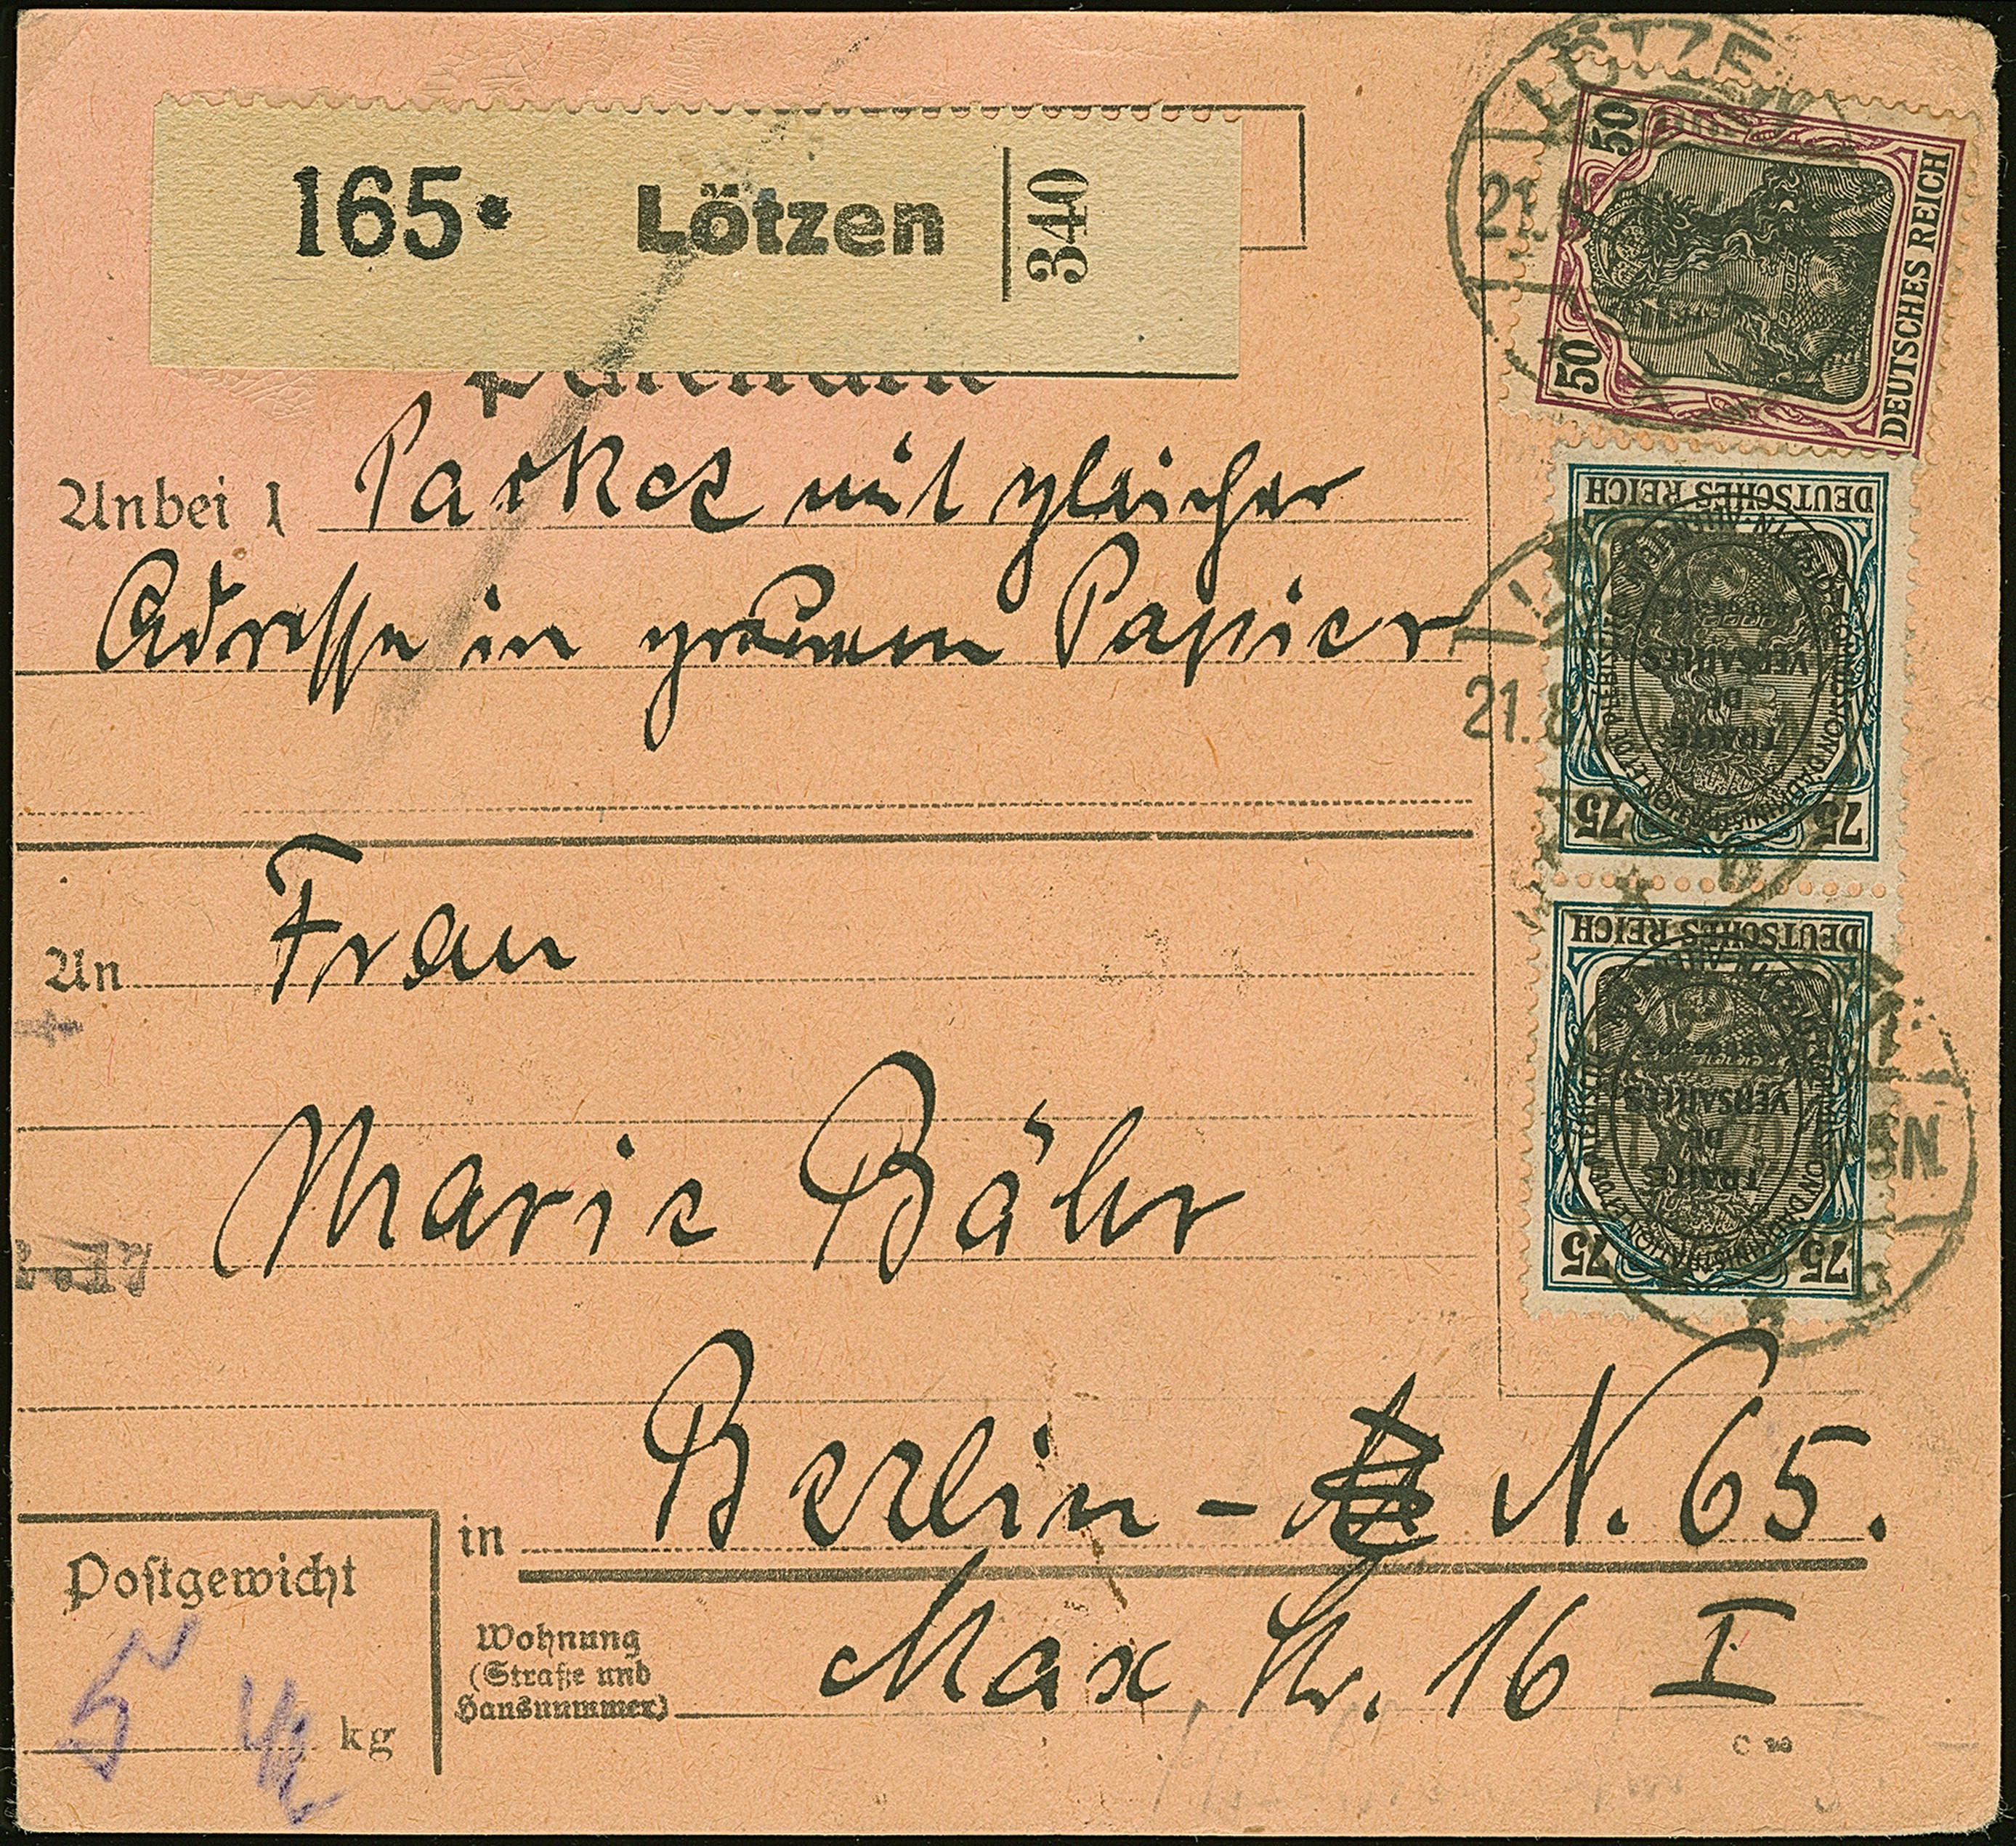 165• Lötzen 340
Paketkarte
Anbei 1 Packet mit gleicher
Adresse in grauem Papier
An Frau
Marie Bähr
in Berlin - N. 65.
Postgewicht
5 1/2 kg
Wohnung
(Straße und
Hausnummer)
Max Str. 16 I
C 20
50
50
DEUTSCHES REICH
LÖTZEN
21.8
DEUTSCHES REICH
TRAITÉ
DE
VERSAILLES
75 75
21.8
DEUTSCHES REICH
TRAITÉ
DE
VERSAILLES
75 75